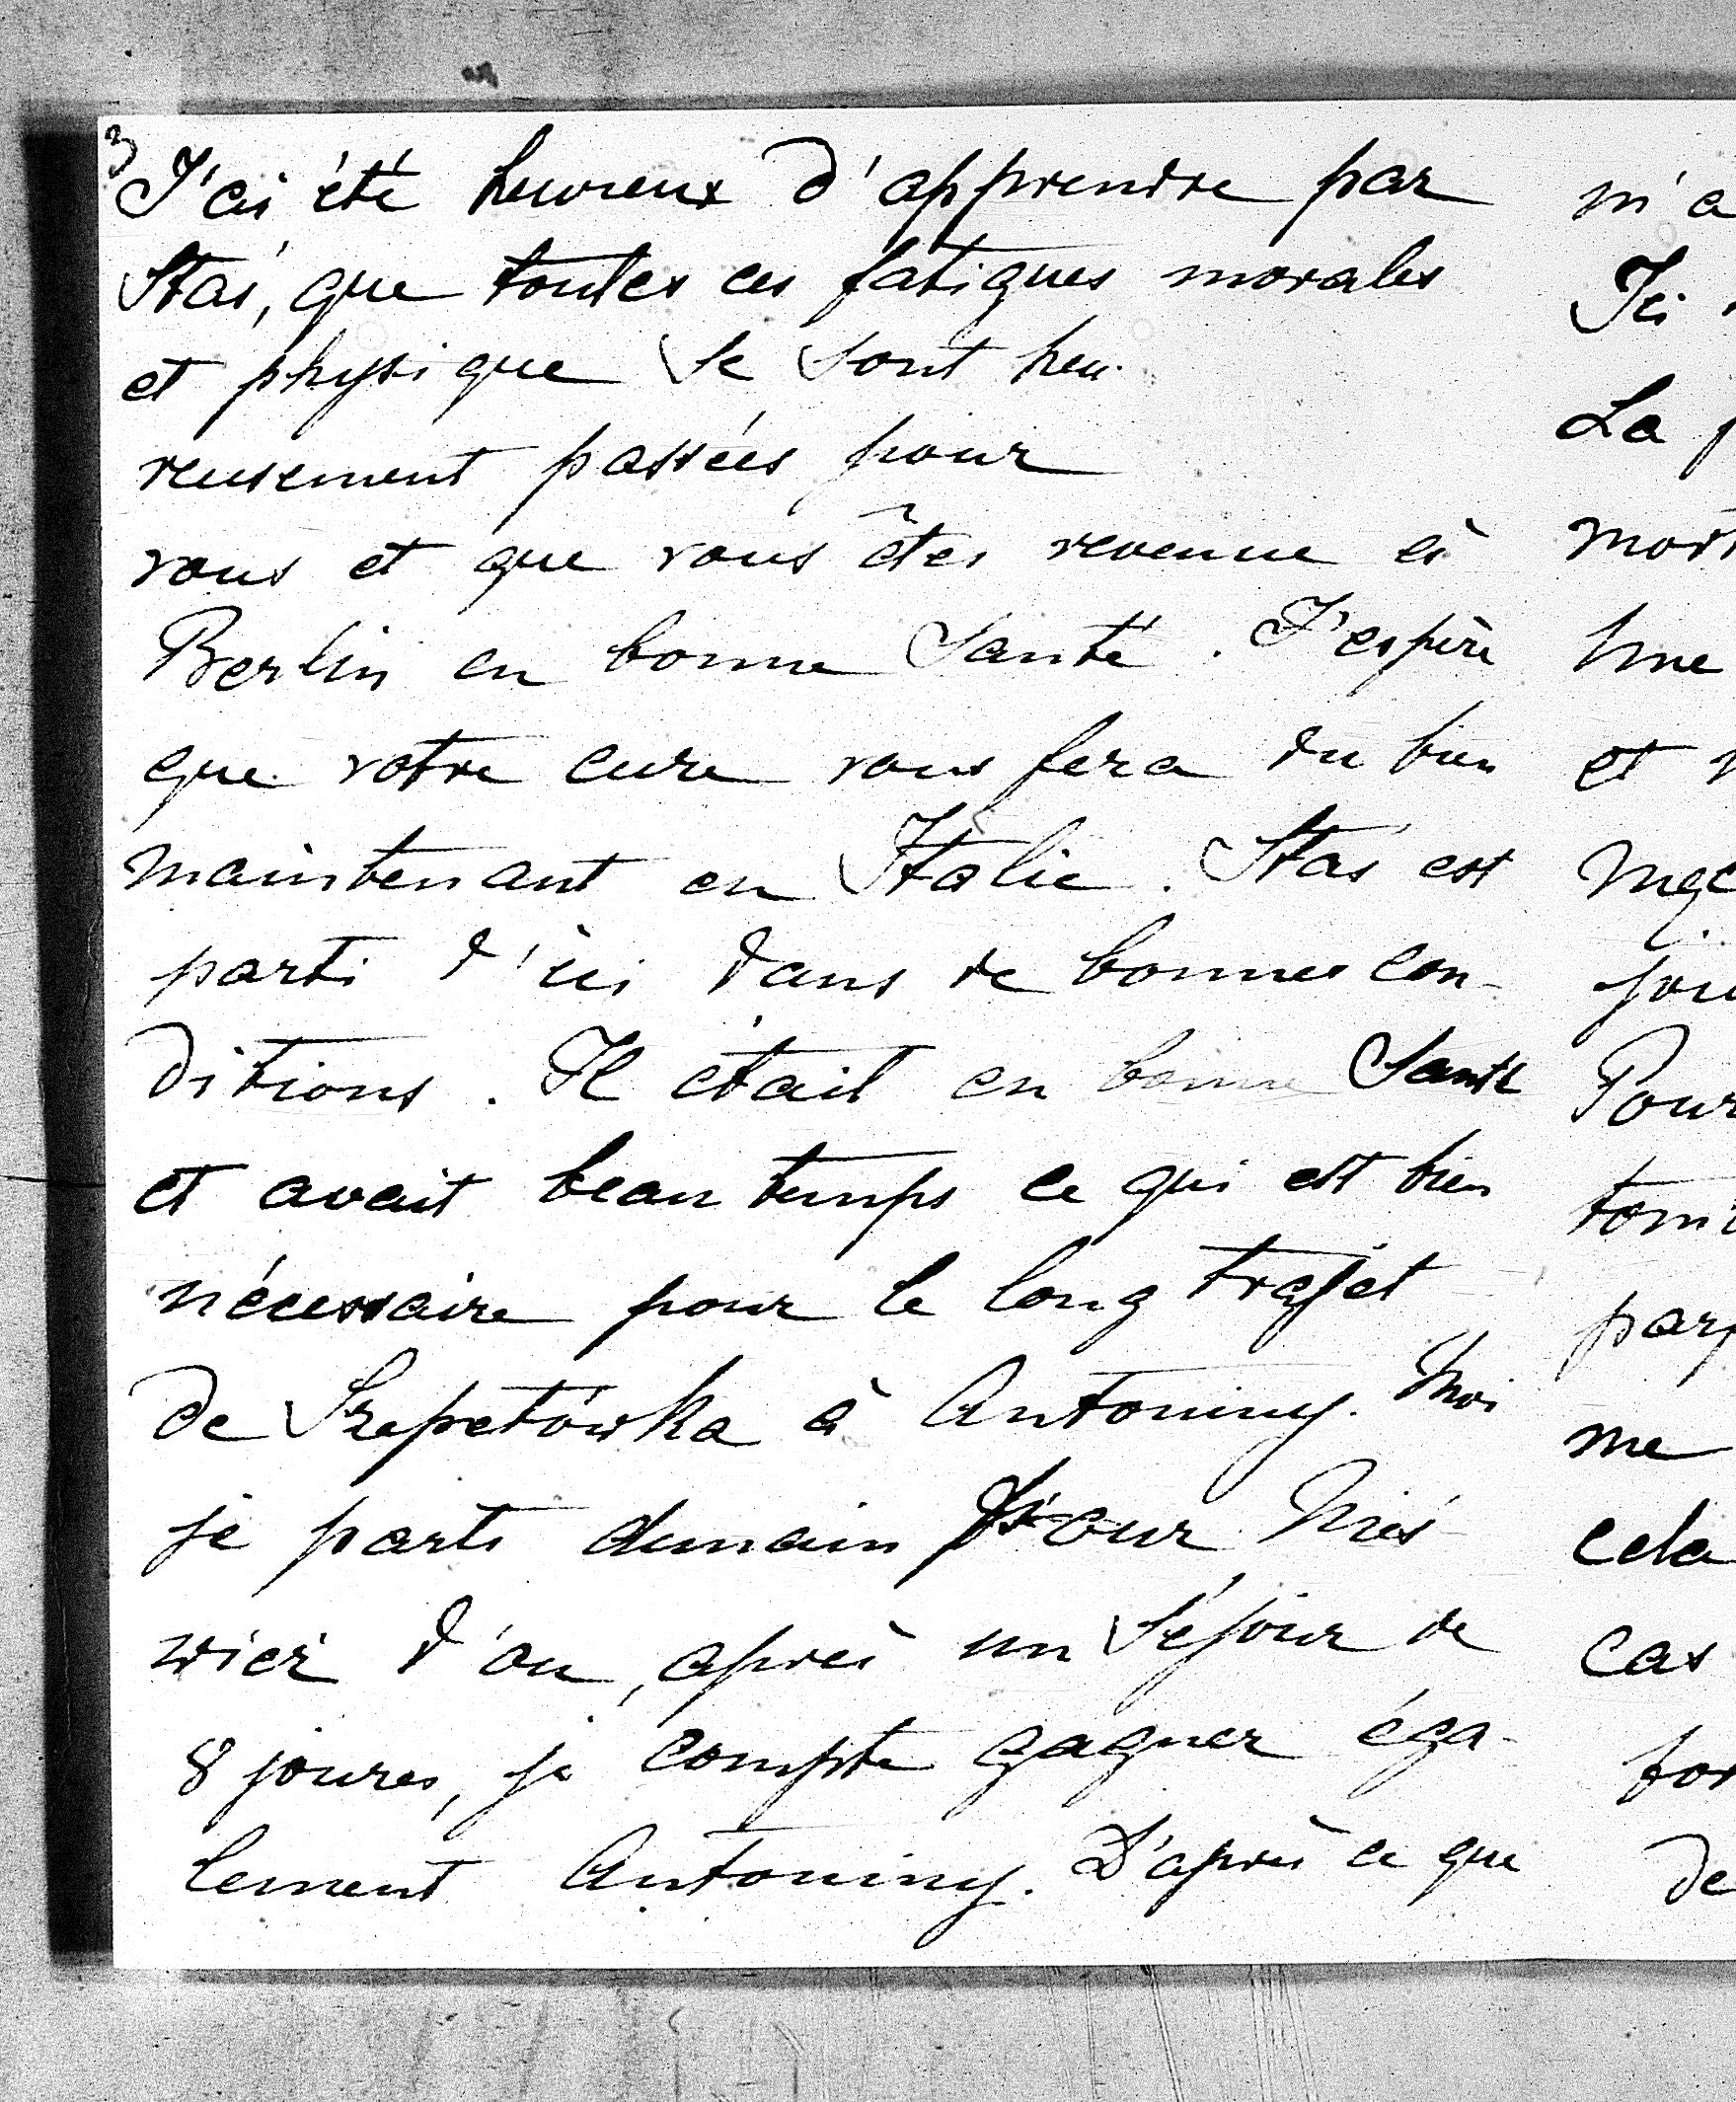 3
J'ai été heureux d'apprendre par
Staś, que toutes ces fatigues morales
et physique se sont heu-
reusement passées pour
vous et que vous êtes revenue à
Berlin en bonne santé. J'espère
que votre cure vous fera du bien
maintenant en Italie. Staś est
parti d'ici dans de bonnes con-
ditions. Il était en bonne santé
et avait beau temps ce qui est bien
nécessaire pour le long trajet
de Szepetówka à Antoniny. Moi
je parts demain pour Nieś-
wież d'ou, après un séjour de
8 joures, je compte gagner éga-
lement Antoniny. D'après ce que
m'a
Ici
La
mort
une
et
jou
Pour
tom
par
me
cela
cas
for
de